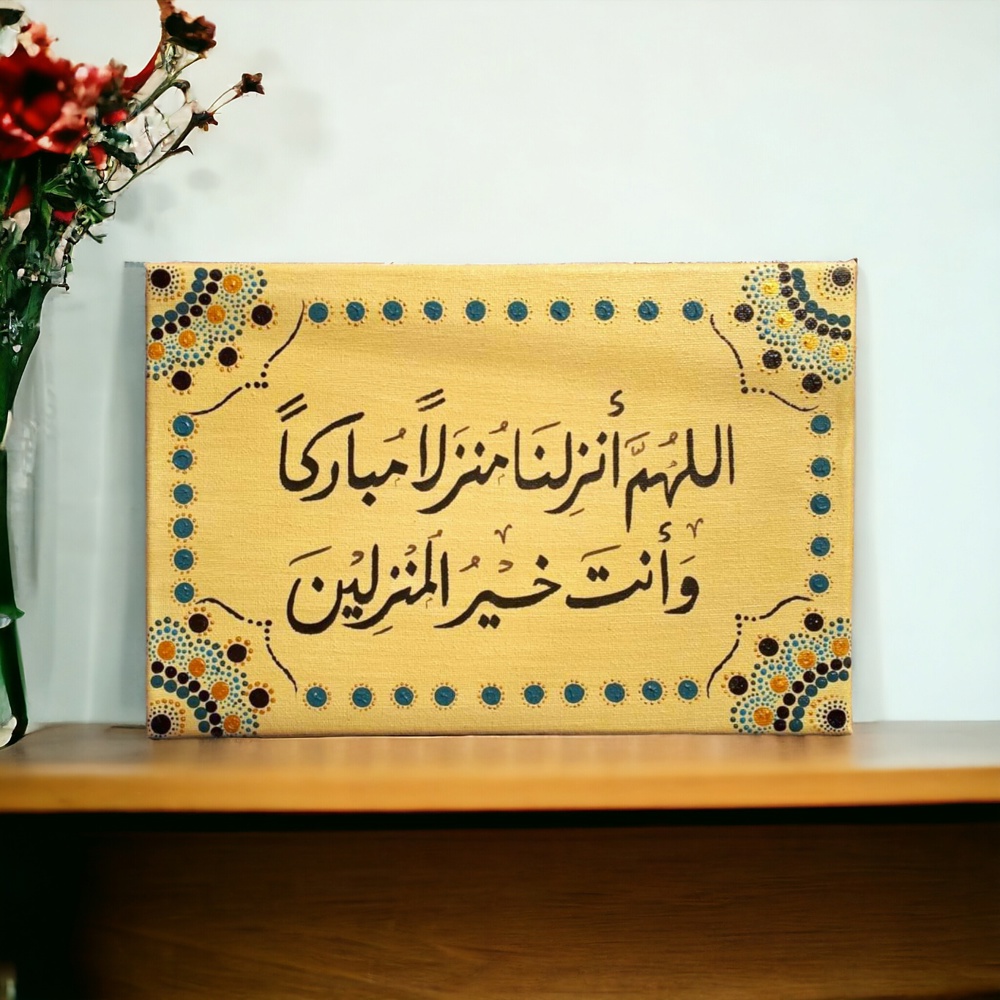 اللهُمَّ أنزِلنَا مُنزَلاً مُباركاً
وَأنتَ خيرُ المُنزِلين